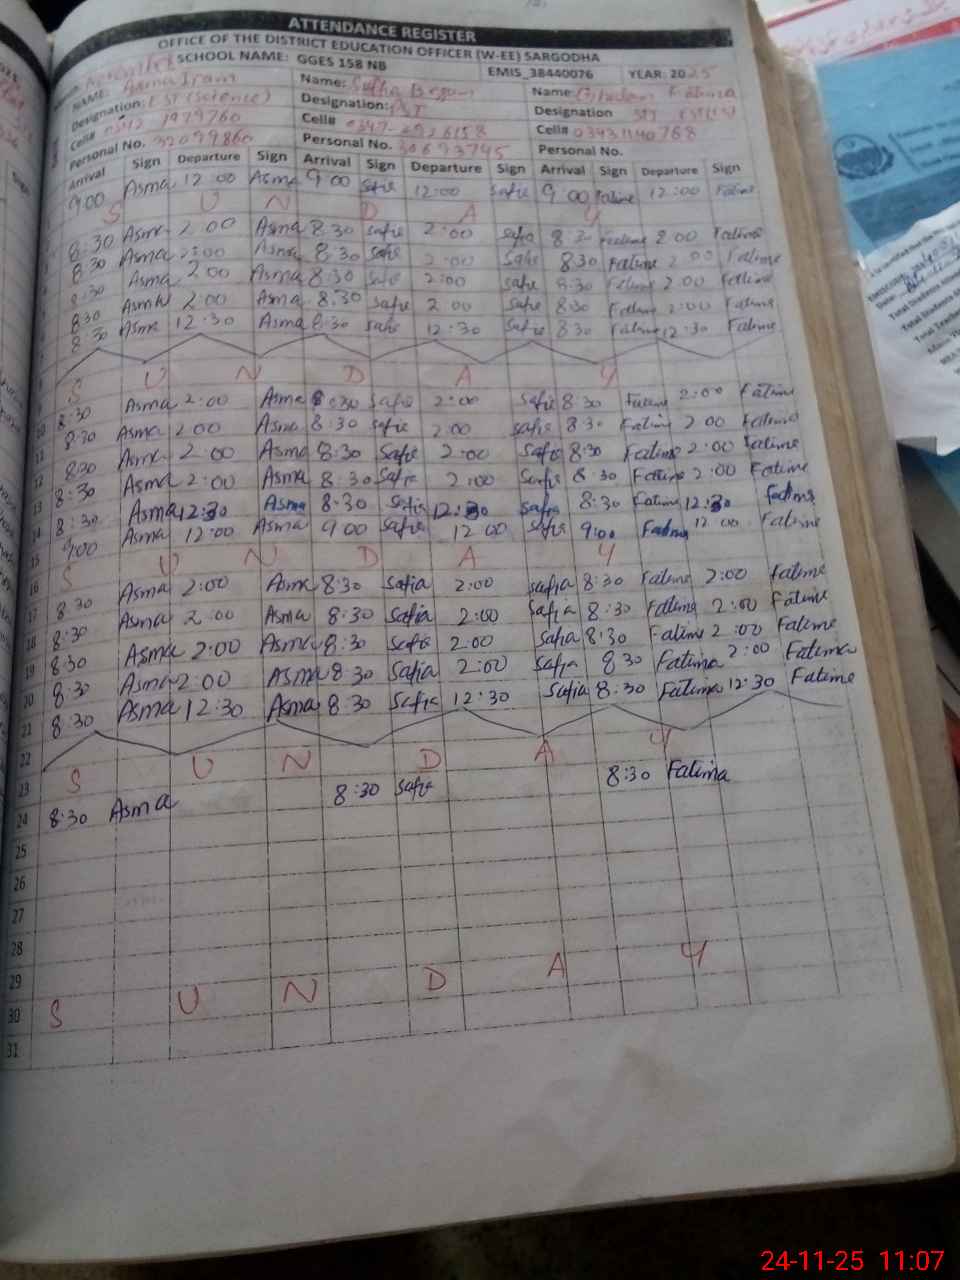 ATTENDANCE REGISTER
OFFICE OF THE DISTRICT EDUCATION OFFICER (W-EE) SARGODHA
SCHOOL NAME: GGES 158 NB EMIS_38440076 YEAR: 2025
NAME: Asma Iram Name: Safia Begum Name: Fatima
Designation: EST (Science) Designation: PST Designation
Cell# Cell# Cell#
Personal No. Personal No. Personal No.
Arrival Sign Departure Sign Arrival Sign Departure Sign Arrival Sign Departure Sign
9:00 Asma 12:00 Asma 9:00 Safie 12:00 Safie 9:00 Fatime 12:00 Fatime
S U N D A Y
8:30 Asma 2:00 Asma 8:30 Safie 2:00 Safie 8:30 Fatime 2:00 Fatime
8:30 Asma 2:00 Asma 8:30 Safie 2:00 Safie 8:30 Fatime 2:00 Fatime
8:30 Asma 2:00 Asma 8:30 Safie 2:00 Safie 8:30 Fatime 2:00 Fatime
8:30 Asma 2:00 Asma 8:30 Safie 2:00 Safie 8:30 Fatime 2:00 Fatime
8:30 Asma 12:30 Asma 8:30 Safie 12:30 Safie 8:30 Fatime 12:30 Fatime
S U N D A Y
8:30 Asma 2:00 Asma 8:30 Safie 2:00 Safie 8:30 Fatime 2:00 Fatime
10 8:30 Asma 2:00 Asma 8:30 Safie 2:00 Safie 8:30 Fatime 2:00 Fatime
11 8:30 Asma 2:00 Asma 8:30 Safie 2:00 Safie 8:30 Fatime 2:00 Fatime
12 8:30 Asma 2:00 Asma 8:30 Safie 2:00 Safie 8:30 Fatime 2:00 Fatime
13 8:30 Asma 12:30 Asma 8:30 Safie 12:30 Safie 8:30 Fatime 12:30 Fatime
14 9:00 Asma 12:00 Asma 9:00 Safie 12:00 Safie 9:00 Fatima 12:00 Fatime
15 S U N D A Y
16 8:30 Asma 2:00 Asma 8:30 Safia 2:00 Safia 8:30 Fatime 2:00 Fatime
17 8:30 Asma 2:00 Asma 8:30 Safia 2:00 Safia 8:30 Fatime 2:00 Fatime
18 8:30 Asma 2:00 Asma 8:30 Safia 2:00 Safia 8:30 Fatime 2:00 Fatime
19 8:30 Asma 2:00 Asma 8:30 Safia 2:00 Safia 8:30 Fatima 2:00 Fatima
20 8:30 Asma 12:30 Asma 8:30 Safia 12:30 Safia 8:30 Fatima 12:30 Fatime
21
22
23 S U N D A Y
24 8:30 Asma 8:30 Safie 8:30 Fatima
25
26
27
28
29
30 S U N D A Y
31
24-11-25 11:07